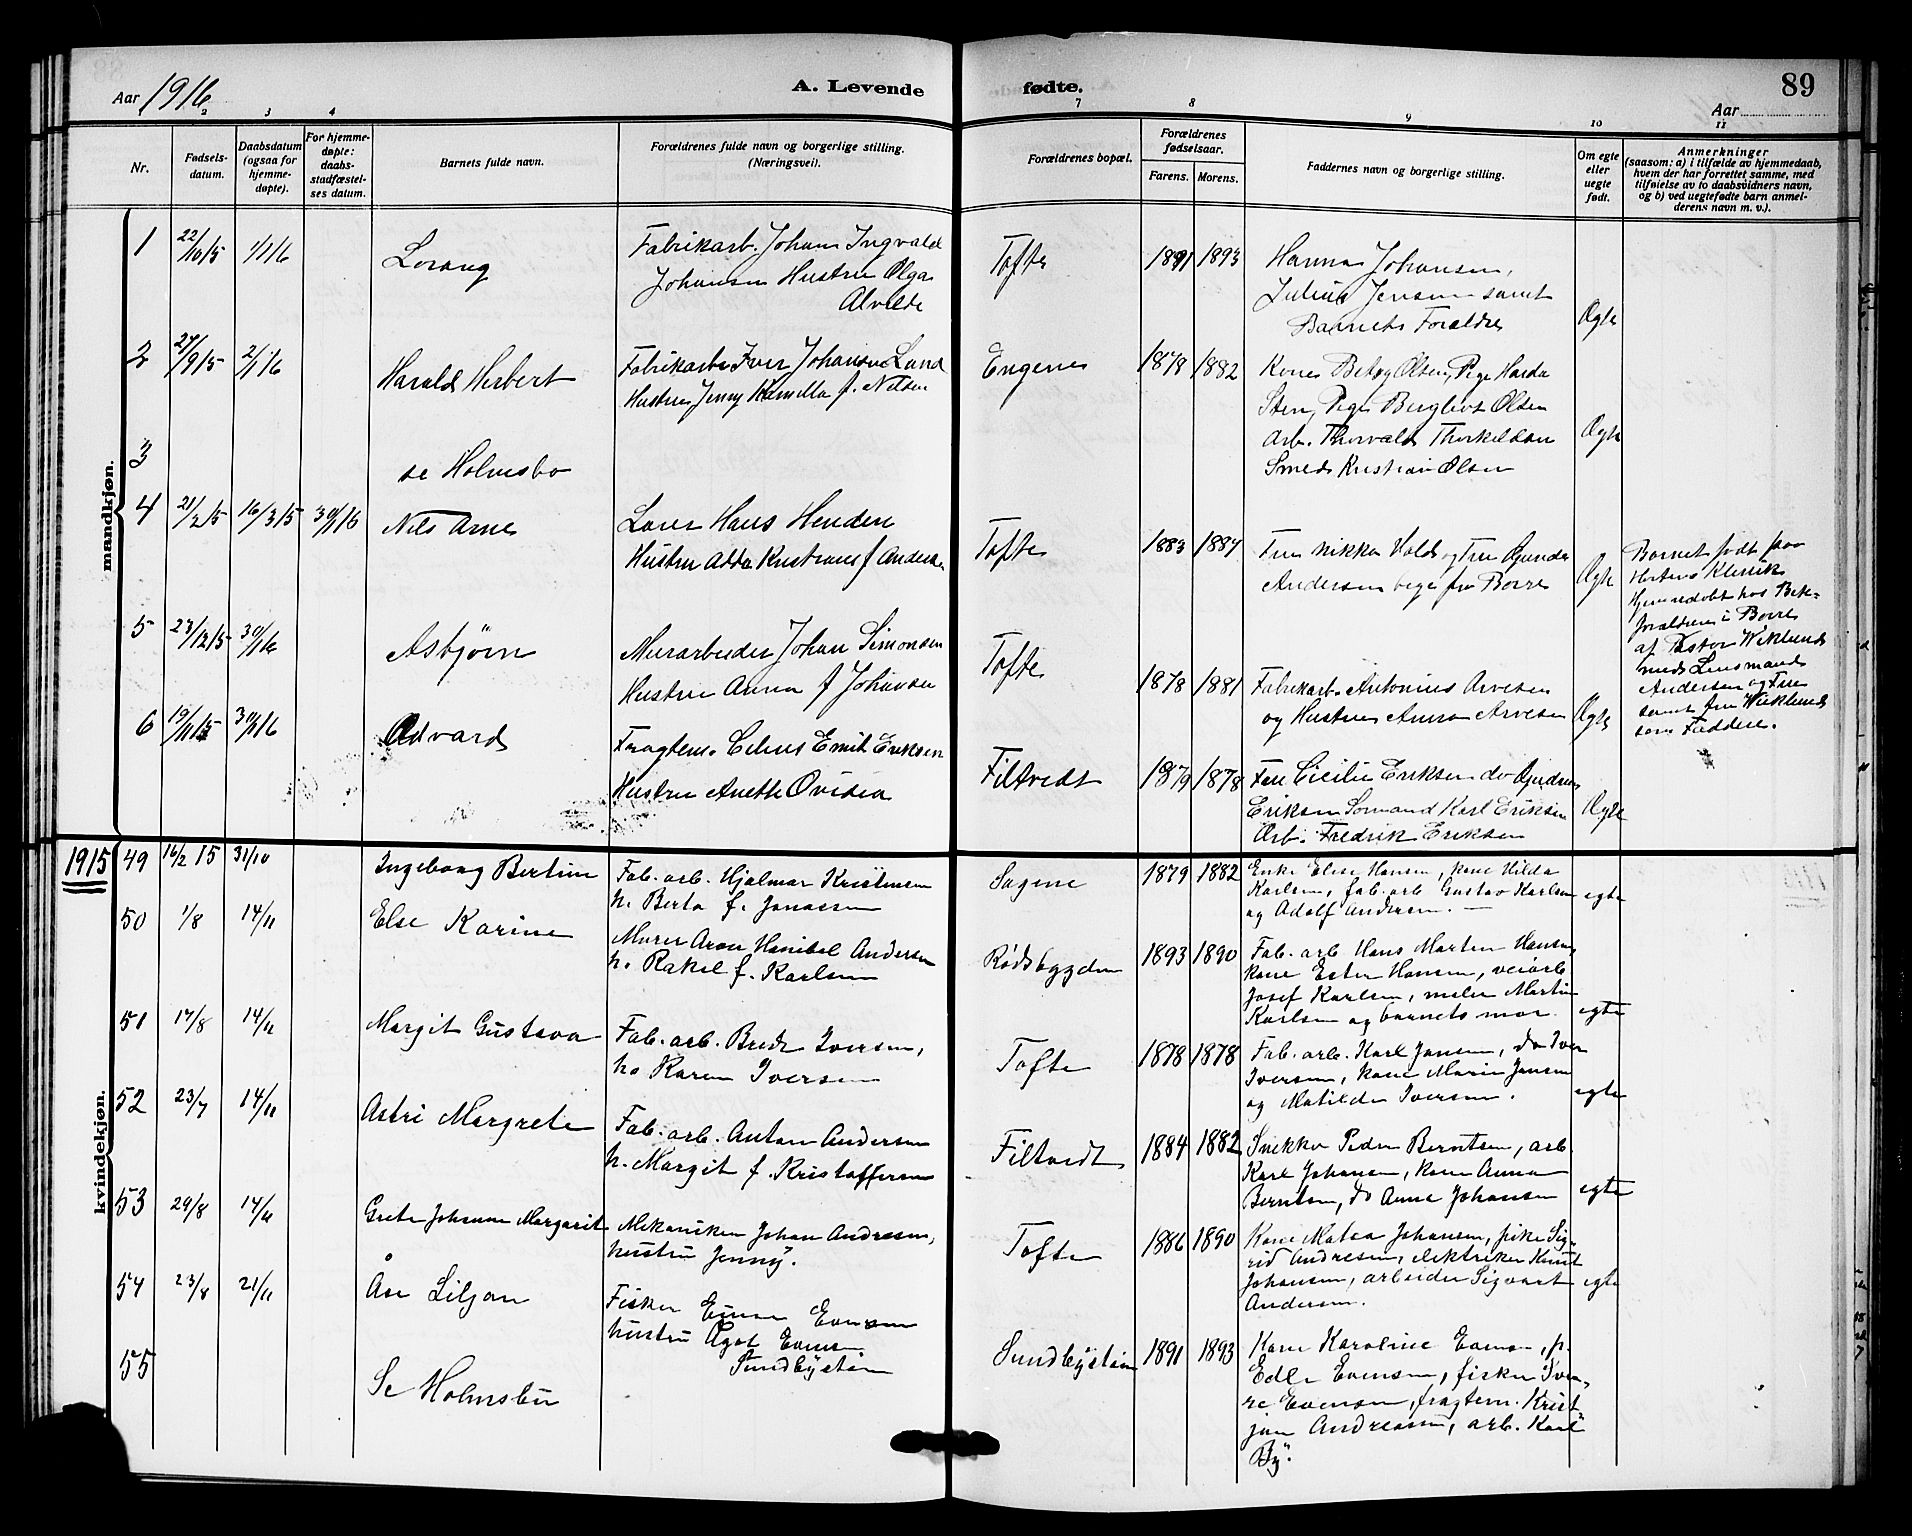 Aar 1916
A. Levende
fødte.
89
Aar
2 3 4 7 8 9 10 11
Nr.
Fødsels-
datum.
Daabsdatum
(ogsaa for
hjemme-
døpte).
For hjemme-
døpte:
daabs-
stadfæstel-
ses datum.
Barnets fulde navn.
Forældrenes fulde navn og borgerlige stilling.
(Næringsvei).
Forældrenes bopæl.
Forældrenes
fødselsaar.
Farens. Morens.
Faddernes navn og borgerlige stilling.
Om egte
eller
uegte
født.
Anmerkninger
(saasom: a) i tilfælde av hjemmedaab,
hvem der har forrettet samme, med
tilføielse av to daabsvidners navn,
og b) ved uegtefødte barn anmel-
derens navn m. v.).
mandkjøn.
1 22/10 15 1/1 16 Lorang
Fabrikarb. Johan Ingvald
Johansen Hustru Olga
Alvilde
Tofte 1891 1893
Hanna Johansen,
Julius Jensen samt
Barnets Forældre
Ægte
2 27/9 15 2/1 16 Harald Herbert
Fabrikarb. Iver Johansen Lund
Hustru Jenny Kamilla f. Nilsen
Engene 1878 1882
Kone Betzy Olsen, Pige Harda
Sten, Pige Bergliot Olsen
Arb. Thorvald Thorkildsen
Smed Kristian Olsen
Ægte
3 se Holmsbo
4 21/2 15 16/3 15 30/1 16 Nils Arne
Hans
Hustru f. Andersen
Tofte 1883 1884
Fru Vold og Fru
Andersen bege fra Borre
Ægte
Barnet født paa
Hortens Klinik
Hjemmedøbt hos
forældrene i Borre
af Pastor Wiklund
med Lensmand
Andersen og Frue
samt fru Wiklund
som Faddere.
5 23/12 15 30/1 16 Asbjørn
Murarbeider Johan Simonsen
Hustru Anna f Johansen
Tofte 1878 1881
Fabrikarb. Antonius Arvesen
og Hustru Anna Arvesen
Ægte
6 19/11 15 30/1 16 Edvard
Fragtem. Emil Eriksen
Hustru Anette Ovidia
Filtvedt 1879 1878
Fru Cicilie Eriksen do
Eriksen Sømand Karl Eriksen
Arb. Fredrik Eriksen
Ægte
1915
kvindekjøn.
49 16/2 15 31/10 Ingeborg Bertine
Fab. arb. Hjalmar Kristensen
h. Berta f. Jonassen
Sagene 1879 1882
Enke Elise Hansen, kone Hilda
Karlsen, fab. arb Gustav Karlsen
og Adolf Andersen. —
egte
50 1/8 14/11 Else Karine
Murer Aron Hanibal Andersen
h. Rakel f. Karlsen
Rødsbygden 1893 1890
Fab. arb Hans Martin Hansen,
kone Ester Hansen, veiarb.
Josef Karlsen, maler Martin
Karlsen og barnets mor.
egte
51 17/8 14/11 Margit Gustava
Fab. arb. Brede Iversen,
h. Karen Iversen
Tofte 1878 1878
Fab. arb. Karl Jansen, do Iver
Iversen, kone Marie Jansen
og Matilde Iversen.
egte
52 23/7 14/11 Astri Margrete
Fab. arb. Anton Andersen
h. Margit f. Kristoffersen
Filtvedt 1884 1882
Snekker Peder Berntsen, arb.
Karl Johansen, kone Anna
Berntsen, do Anne Johansen
egte
53 29/8 14/11 Grete Johanne Margarit
Mekaniker Johan Andresen,
hustru Jenny.
Tofte 1886 1890
Kone Matea Johansen, pike Sig-
rid Andresen, elektriker Knut
Johansen, arbeider Sigvart
Andersen.
egte
54 23/8 21/11 Åse Liljan
Fisker Einar Evensen
hustru Ågot Evensen
Sundbystøen
Sundbystøen 1891 1893
Kone Karoline Evensen, p.
Edle Evensen, fisker Sver-
re Evensen, fragtem. Krist-
jan Andreassen, arb. Karl
By.
55 Se Holmsbu